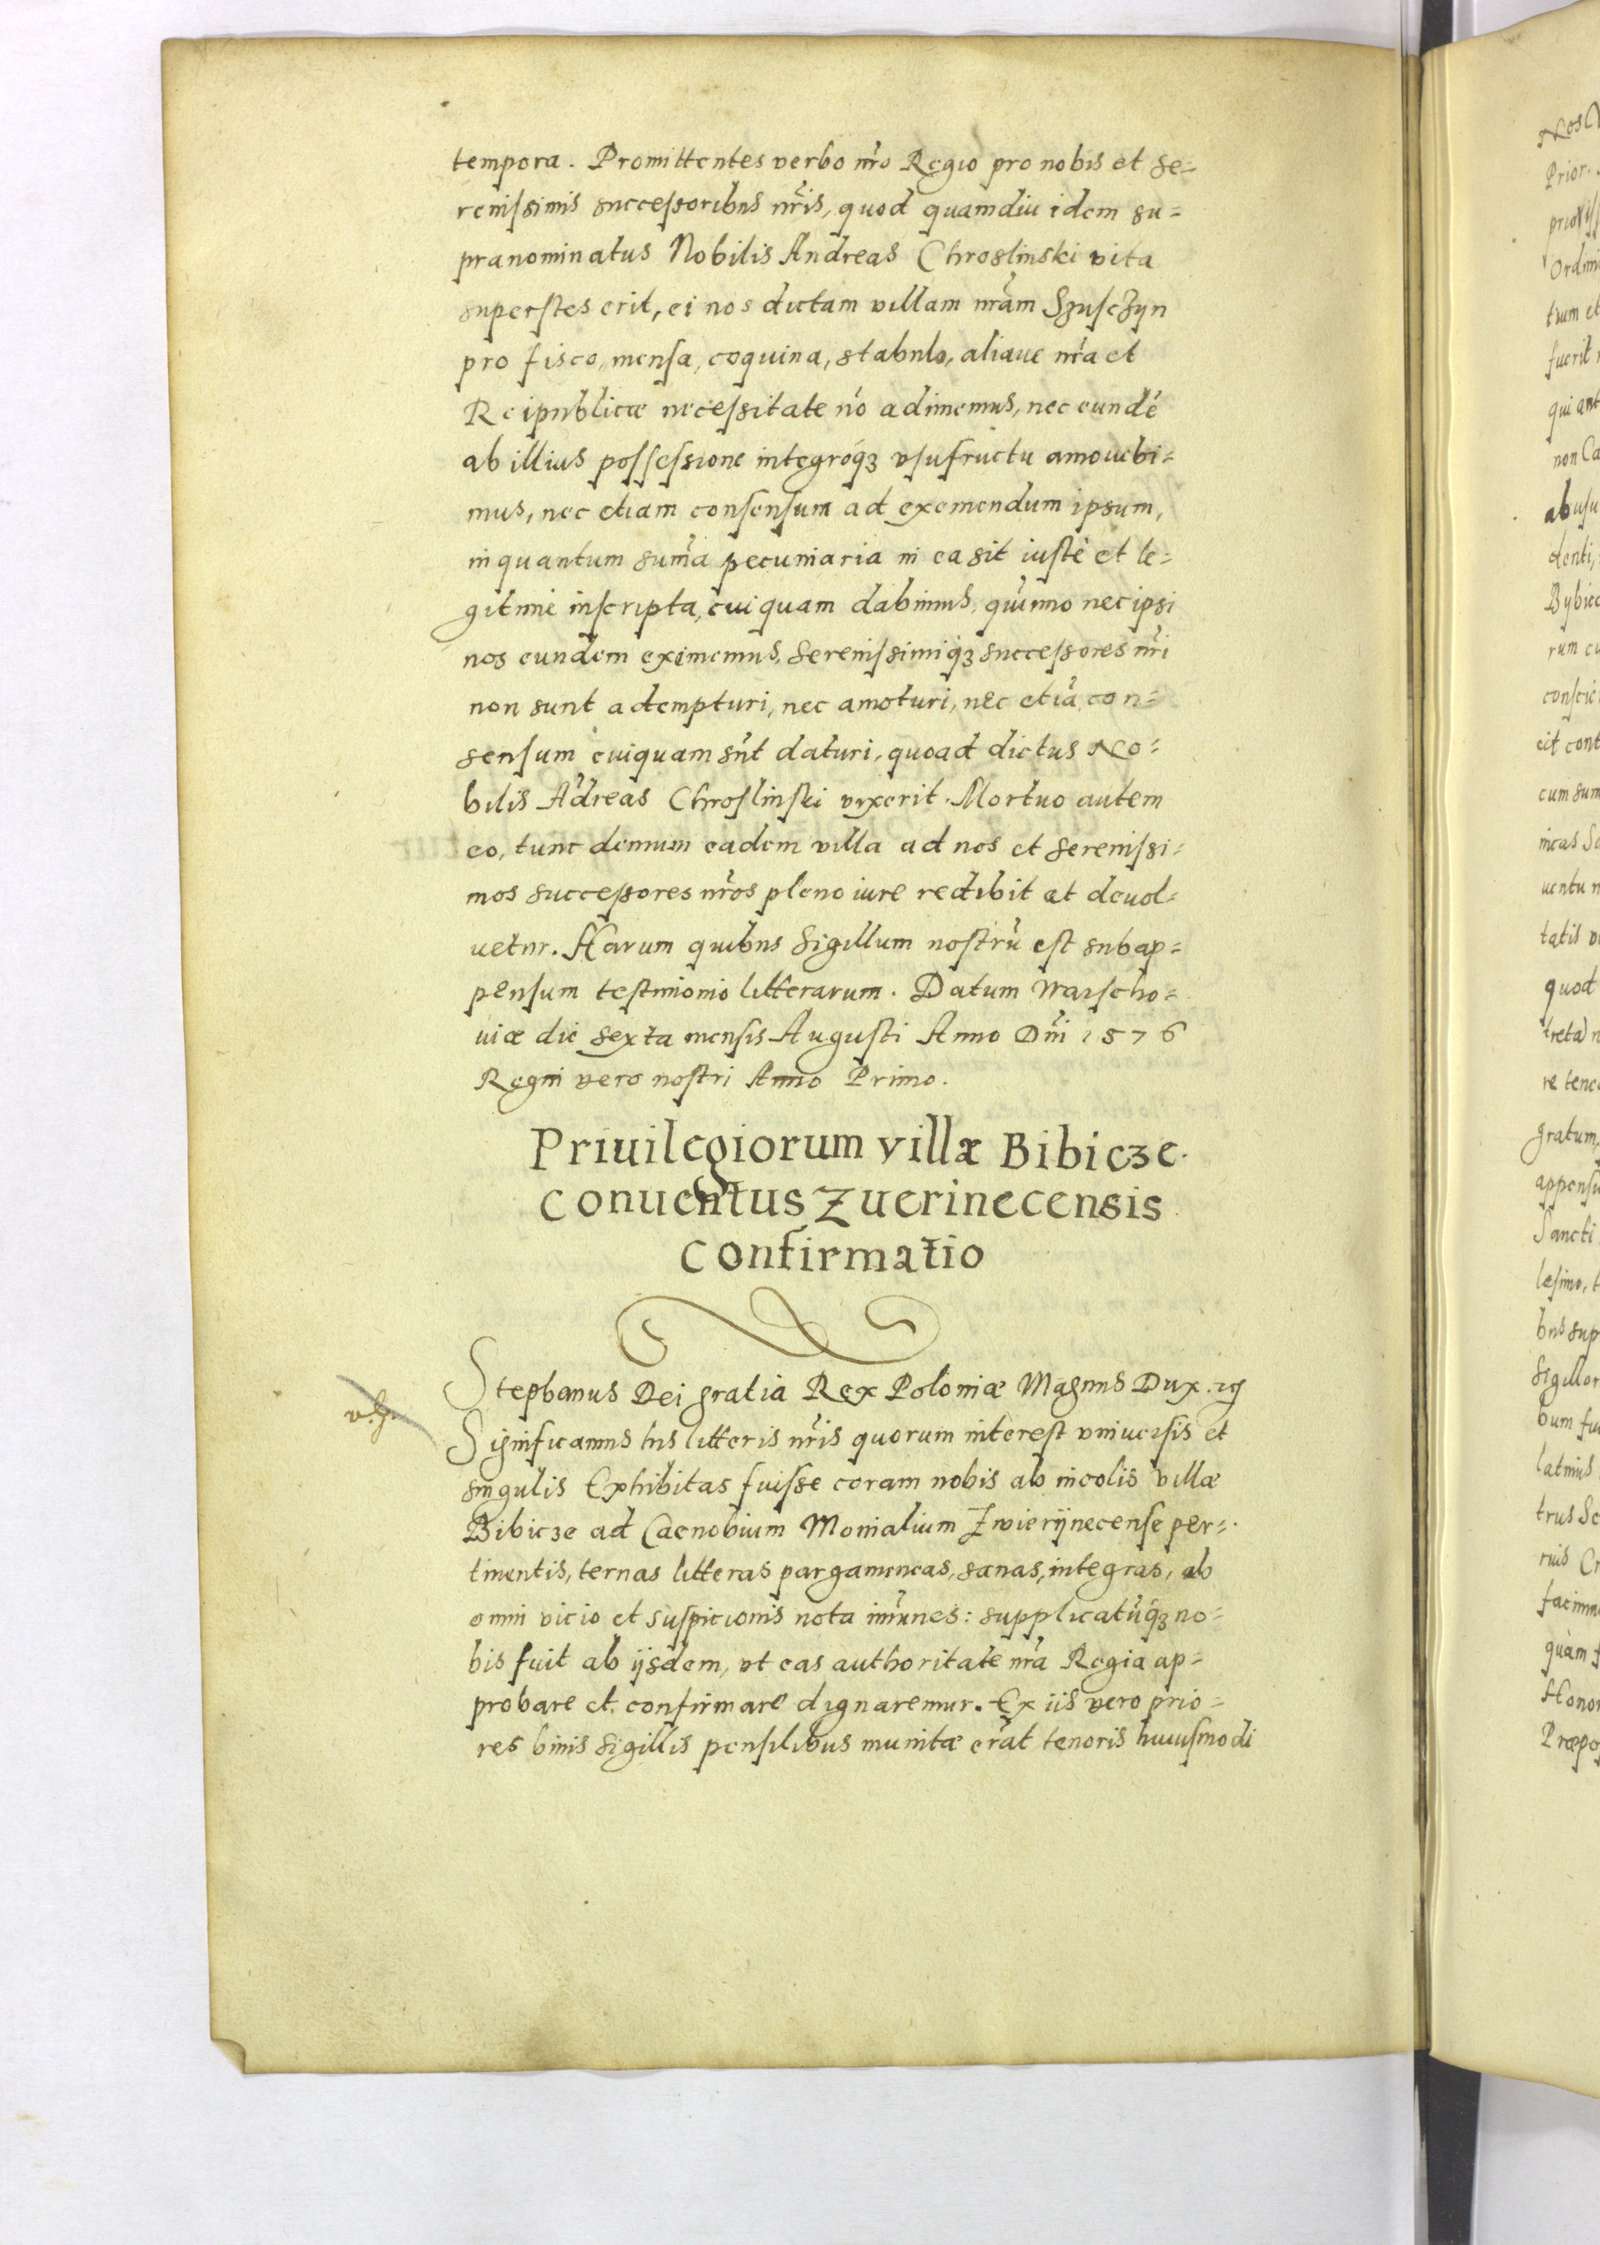 tempora. Promittentes verbo nr̃o Regio pro nobis et se=
renissimis successoribus nr̃is, quod quamdiu idem su=
pranominatus Nobilis Andreas Chroslinski vita
superstes erit, ei nos dictam villam nr̃am Szusczyn
pro fisco, mensa, coquina, stabulo, aliaue nr̃a et
Reipublicæ necessitate nõ adimemus, nec eundẽ
ab illius possessione integroq́ꝫ vsufructu amouebi=
mus, nec etiam consensum ad exemendum ipsum,
in quantum sum̃a pecuniaria in ea sit iustè et le=
gitimè inscripta, cuiquam dabimus, quinimo nec ipsi
nos eundem eximemus, Serenissimiq́ꝫ successores nr̃i
non sunt adempturi, nec amoturi, nec etiã con=
sensum cuiquam sũt daturi, quoad dictus No=
bilis Ãdreas Chroslinski vixerit. Mortuo autem
eo, tunc demum eadem villa ad nos et Serenissi=
mos successores nr̃os pleno iure redibit et deuol=
uetur. Harum quibus Sigillum nostrũ est subap=
pensum testimonio litterarum. Datum Warscho=
uiæ die sexta mensis Augusti Anno Dñi 1576
Regni vero nostri Anno Primo.
Priuilegiorum villæ Bibicze.
conuentus Zuerinecensis
Confirmatio
Stephanus Dei gratia Rex Poloniæ Magnus Dux.
Significamus his litteris nr̃is quorum interest vniuersis et
singulis Exhibitas fuisse coram nobis ab incolis villæ
Bibicze ad Caenobium Monialium Zwierijnecense per=
tinentis, ternas litteras pargameneas, sanas, integras, ab
omni vicio et suspicionis nota im̃unes: supplicatũq́ꝫ no=
bis fuit ab ijsdem, vt eas authoritate nr̃a Regia ap=
probare et confirmare dignaremur. Ex iis vero prio=
res binis Sigillis pensilibus munitæ erãt tenoris huiusmodi